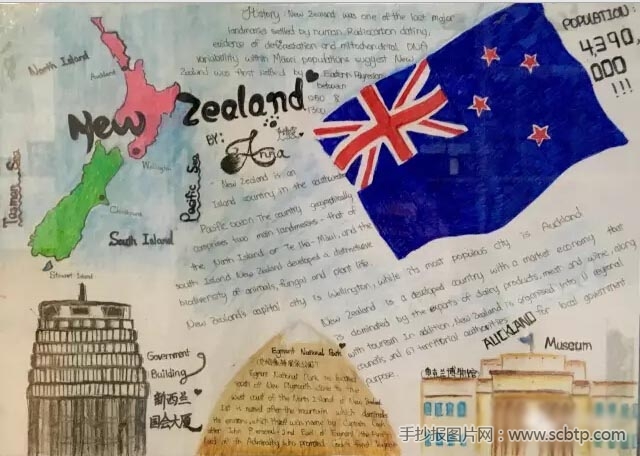 History: New Zealand was one of the last major
landmasses settled by human. Radiocarbon dating,
evidence of deforestation and mitochondrial DNA
variability within Māori populations suggest New
Zealand was first settled by Eastern Polynesians
between
1300
POPULATION:
4,390,
000
!!!
North Island
Auckland
New Zealand
BY:
Anna
Wellington
Christchurch
Tasman Sea
Pacific Sea
South Island
Stewart Island
New Zealand is an
island country in the southwestern
Pacific ocean. The country geographically
comprises two main landmasses - that of
the North Island or Te Ika-Māui, and the
South Island. New Zealand developed a distinctive
biodiversity of animals, fungal and plant life.
New Zealand's capital city is Wellington, while its most populous city is Auckland.
New Zealand is a developed country with a market economy that
is dominated by the exports of dairy products, meat and wine, along
with tourism. In addition, New Zealand is organised into 11 regional
councils and 67 territorial authorities for local government
purpose.
Government
Building
新西兰
国会大厦
Egmont National Park
Egmont National Park is located
south of New Plymouth close to the
west coast of the North Island of New Zealand
It is named after the mountain which dominates
its environs, which itself was name by Captain Cook
after John Perceval 2nd Earl of Egmont the First
Lord of the Admiralty who promoted Cook's first
AUCKLAND Museum
奥克兰博物馆
手抄报图片网：www.scbtp.com